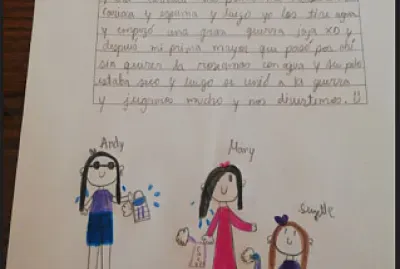 y
careta y espuma y luego yo les tire agua
y empezó una gran guerra jaja XD y
después mi prima mayor que pasó por ahí
sin querer la mojamos con agua y su pelo
estaba seco y luego se unió a la guerra
y jugamos mucho y nos divertimos. :)
Andy
Mary